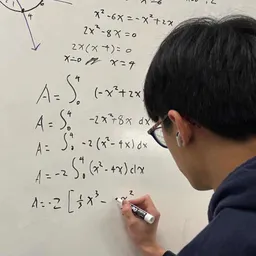 x²-6x = -x²+2x
2x²-8x=0
2x(x-4)=0
x=0 x=4
A=∫₀⁴ (-x²+2x
A=∫₀⁴ -2x²+8x dx
A=∫₀⁴ -2(x²-4x)dx
A=-2∫₀⁴(x²-4x)dx
A=-2[⅓x³-